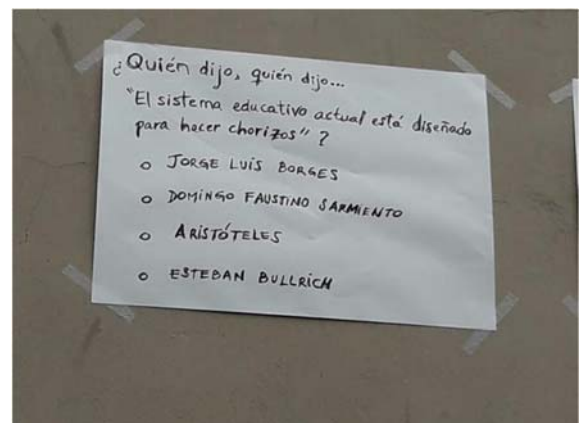 ¿Quién dijo, quién dijo...
"El sistema educativo actual está diseñado
para hacer chorizos" ?
o JORGE LUÍS BORGES
o DOMINGO FAUSTINO SARMIENTO
o ARISTÓTELES
o ESTEBAN BULLRICH